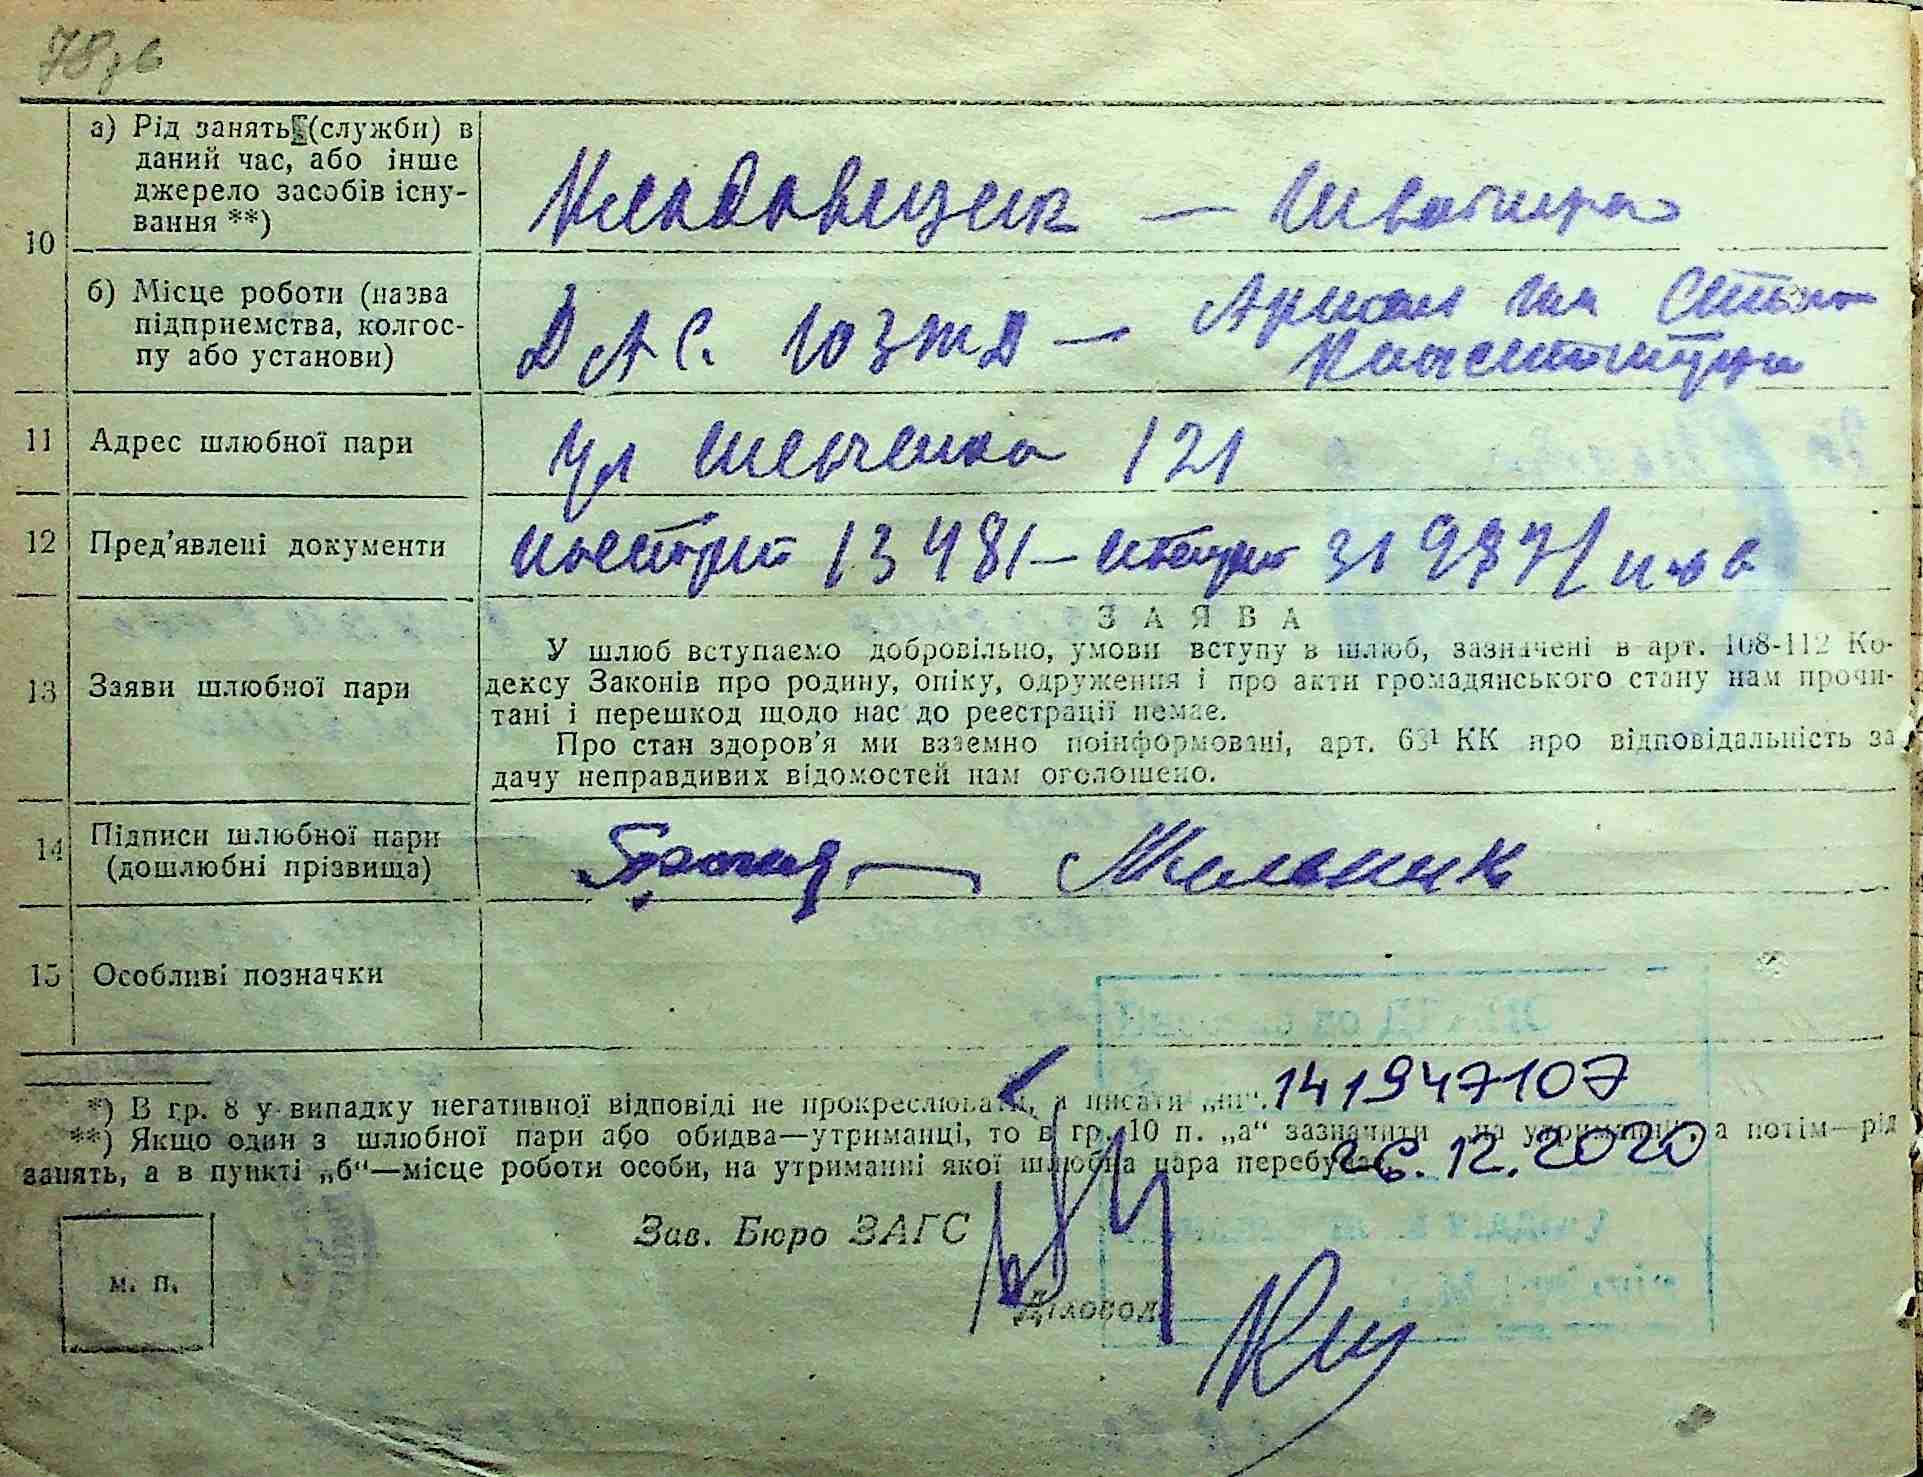 78зв
10
а) Рід занять (служби) в
даний час, або інше
джерело засобів існу-
вання **)
Кладовщик — Швачира
б) Місце роботи (назва
підприємства, колгос-
пу або установи)
ДАС. ЮЗЖД — Артель им Сталин
Конституции
11 Адрес шлюбної пари
ул Шевченка 121
12 Пред'явлені документи
паспорт 13481 — паспорт 31987/
13 Заяви шлюбної пари
ЗАЯВА
У шлюб вступаємо добровільно, умови вступу в шлюб, зазначені в арт. 108-112 Ко-
дексу Законів про родину, опіку, одруження і про акти громадянського стану нам прочи-
тані і перешкод щодо нас до реєстрації немає.
Про стан здоров'я ми взаємно поінформовані, арт. 63¹ КК про відповідальність за
дачу неправдивих відомостей нам оголошено.
14 Підписи шлюбної пари
(дошлюбні прізвища)
Мельник
15 Особливі позначки
*) В гр. 8 у випадку негативної відповіді не прокреслювати, а писати „ні“.
141947107
**) Якщо один з шлюбної пари або обидва—утриманці, то в гр. 10 п. „а“ зазначити на утриманні, а потім—рід
занять, а в пункті „б“—місце роботи особи, на утриманні якої шлюбна пара перебуває.
26.12.2020
Зав. Бюро ЗАГС
м. п.
Діловод